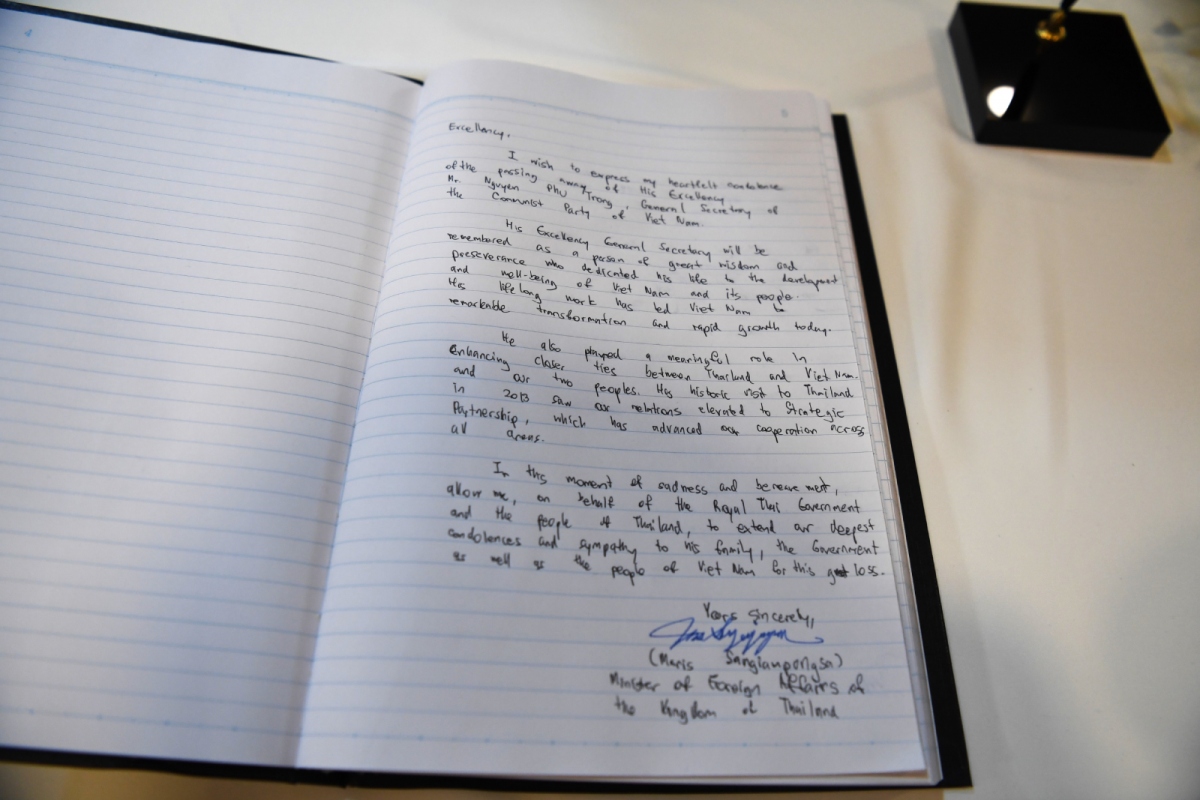 Excellency,
I wish to express my heartfelt condolence
of the passing away of His Excellency
Mr. Nguyen Phu Trong, General Secretary of
the Communist Party of Viet Nam.
His Excellency General Secretary will be
remembered as a person of great wisdom and
perseverance who dedicated his life to the development
and well-being of Viet Nam and its people.
His lifelong work has led Viet Nam to
remarkable transformation and rapid growth today.
He also played a meaningful role in
enhancing closer ties between Thailand and Viet Nam.
and our two peoples. His historic visit to Thailand
in 2013 saw our relations elevated to Strategic
Partnership, which has advanced our cooperation across
all areas.
In this moment of sadness and bereavement,
allow me, on behalf of the Royal Thai Government
and the people of Thailand, to extend our deepest
condolences and sympathy to his family, the Government
as well as the people of Viet Nam for this great loss.
Yours sincerely,
(Maris Sangiampongsa)
Minister of Foreign Affairs of
the Kingdom of Thailand